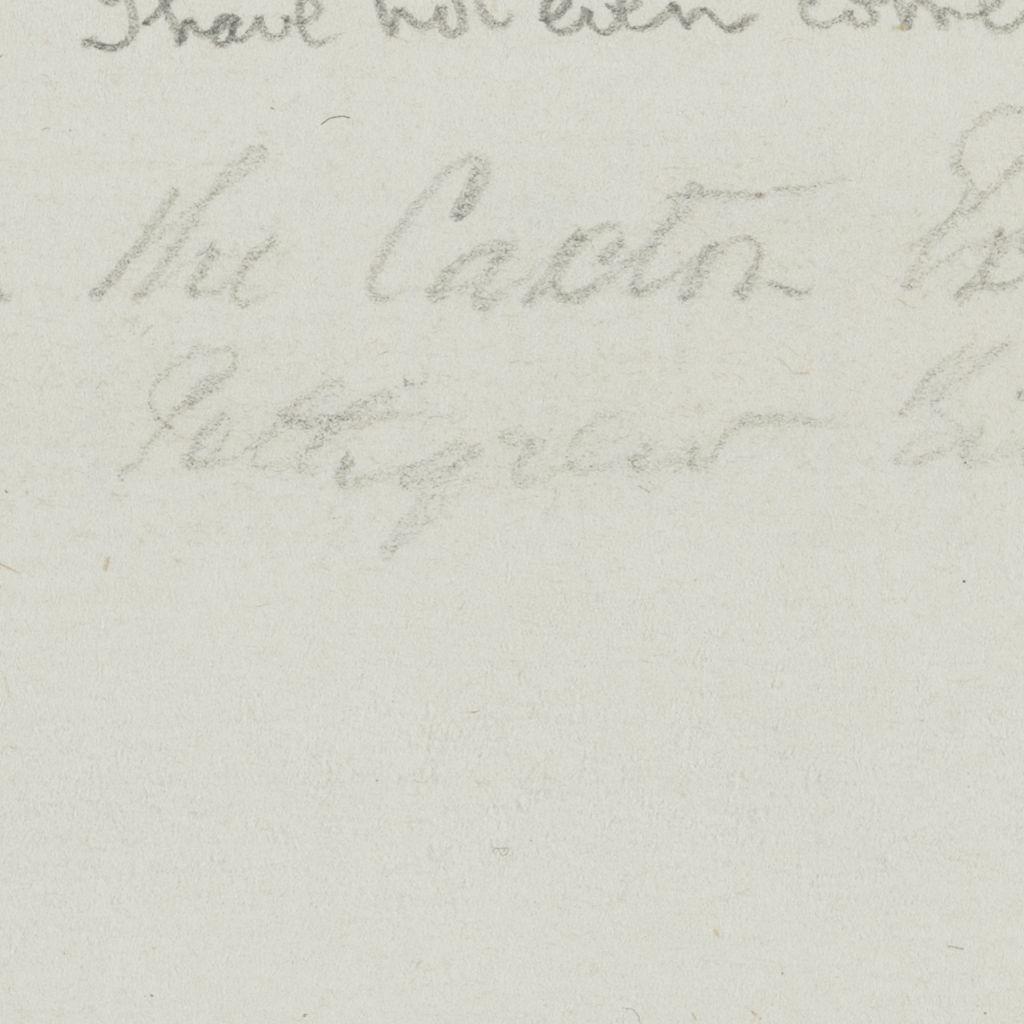 I have not even come
The Caxton
Pettigrew